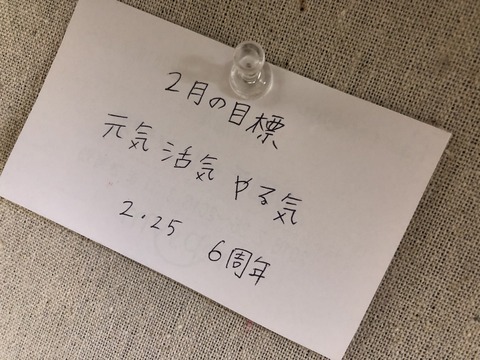 2月の目標
元気 活気 やる気
2.25 6周年